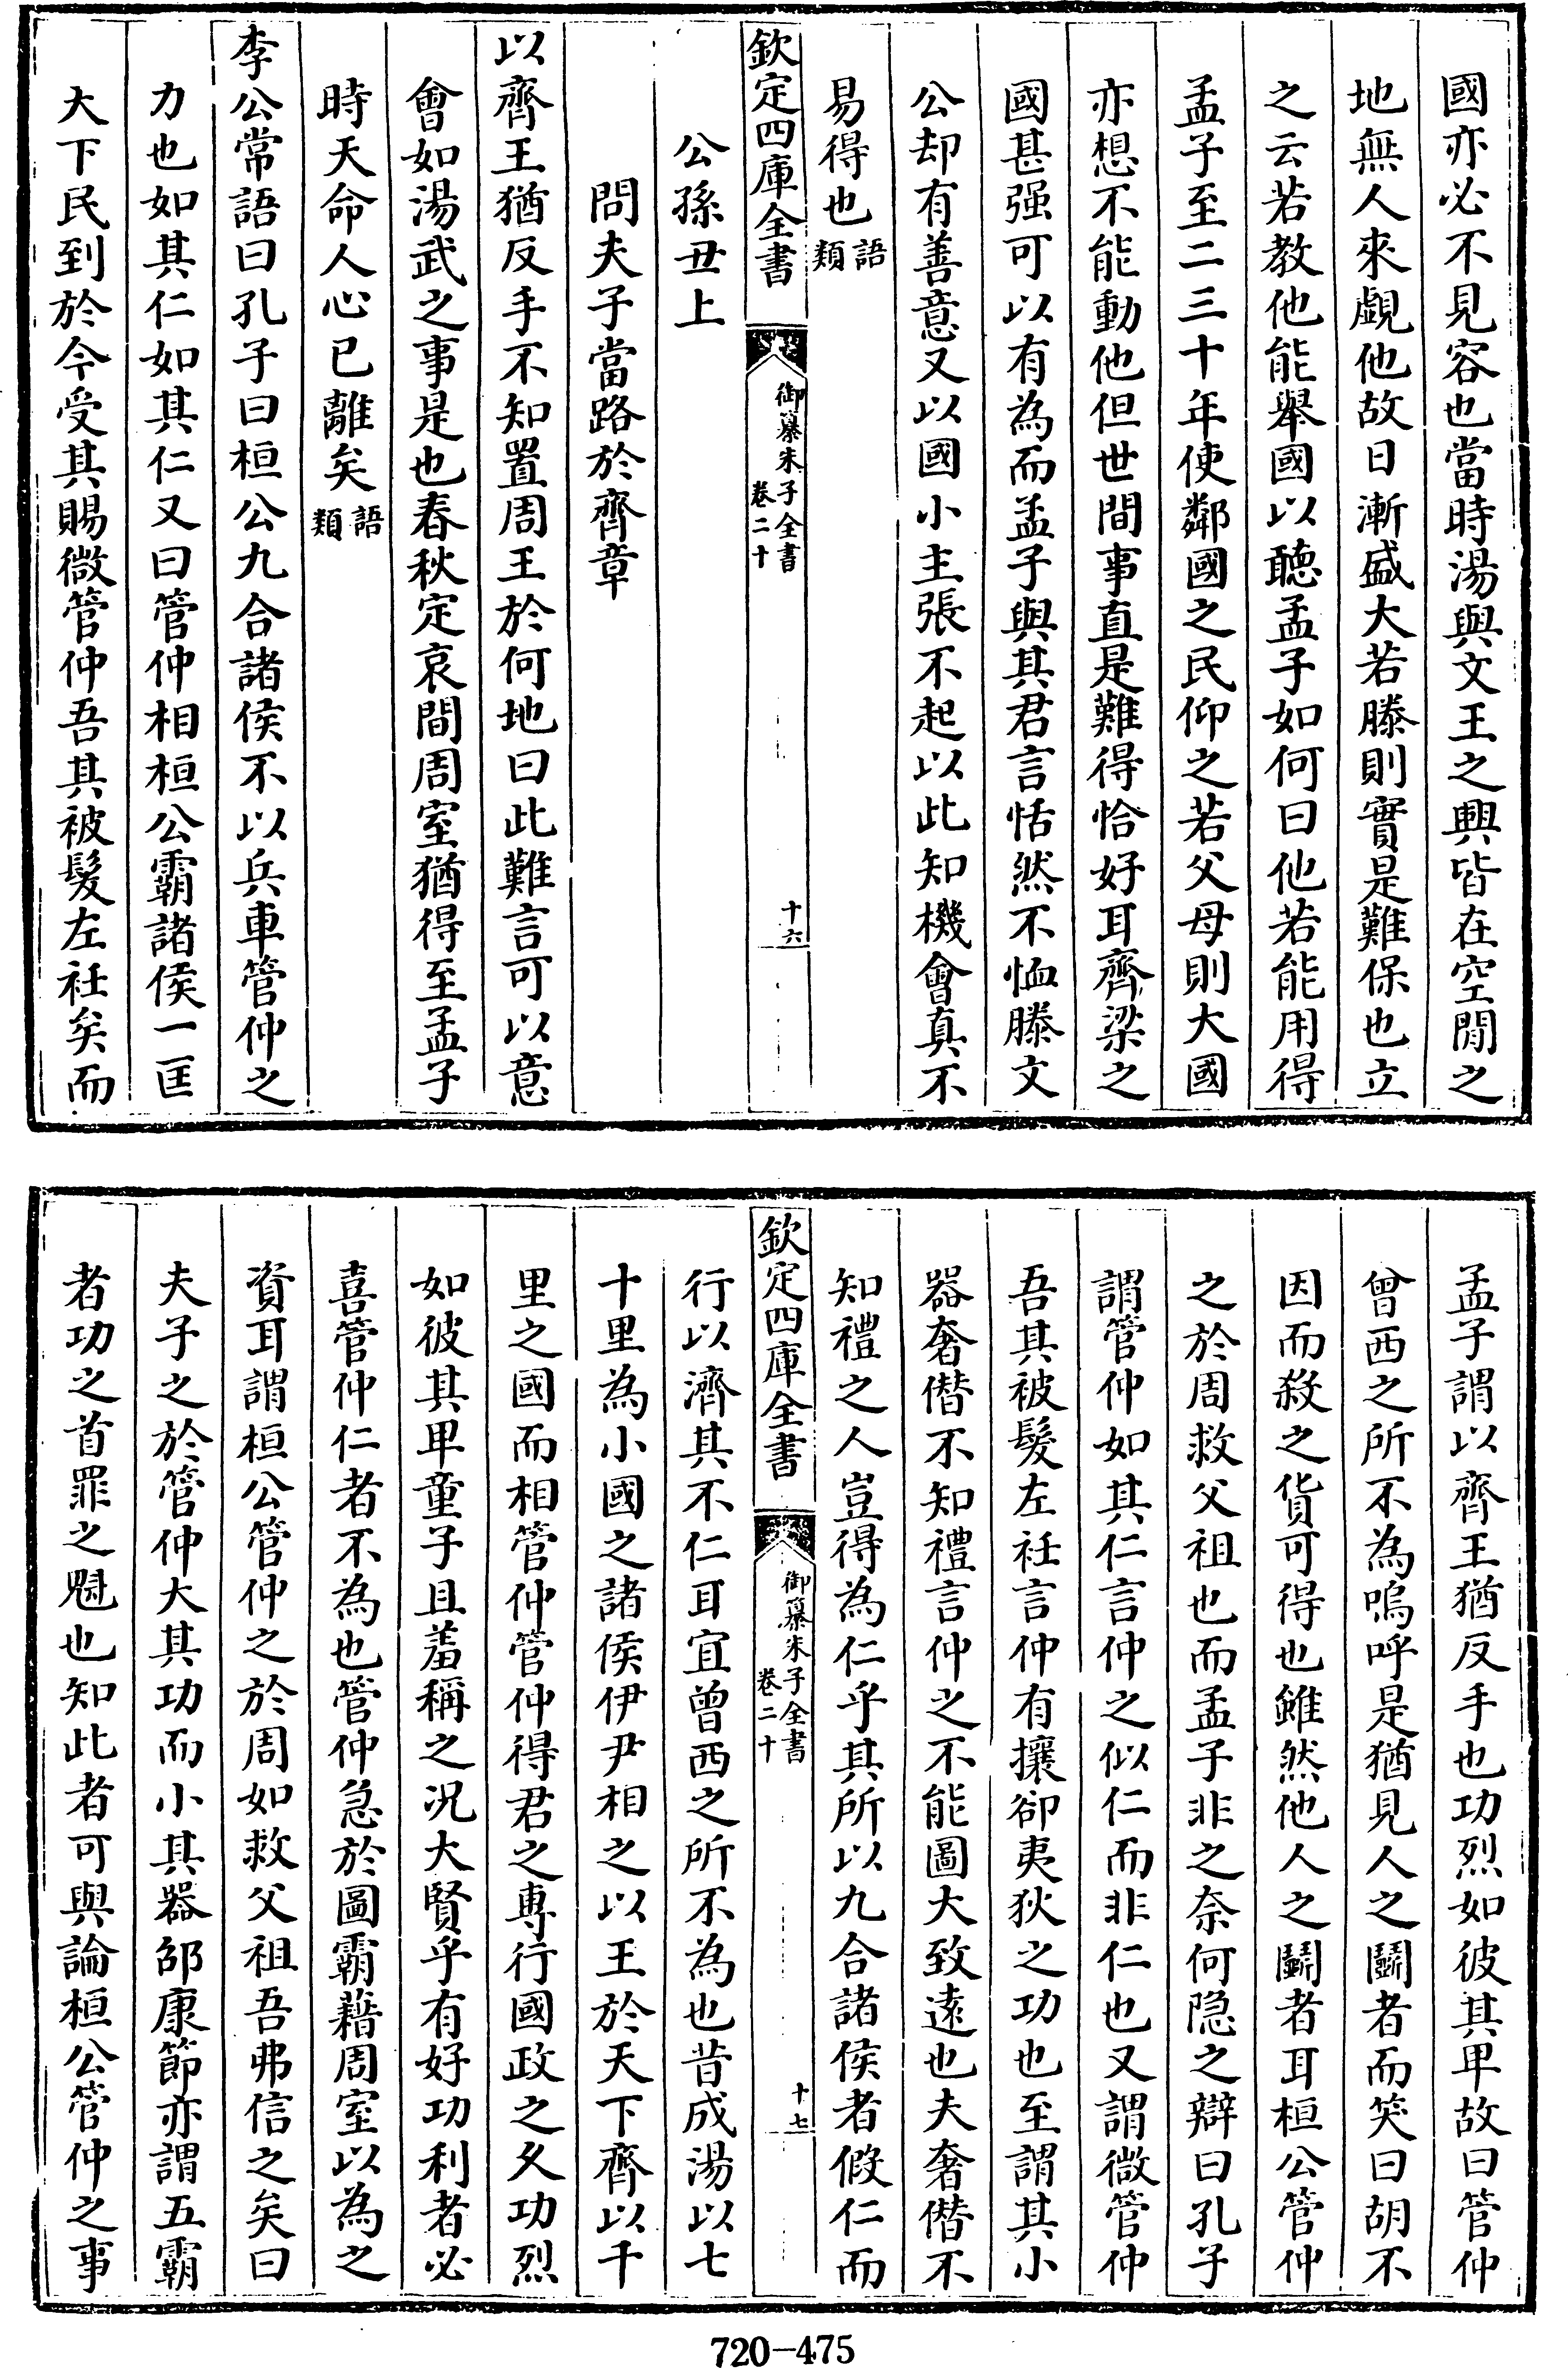 國亦必不見容也當時湯與文王之興皆在空閒之
地無人來覷他故日漸盛大若滕則實是難保也立
之云若教他能舉國以聽孟子如何曰他若能用得
孟子至二三十年使鄰國之民仰之若父母則大國
亦想不能動他但世間事直是難得恰好耳齊梁之
國甚强可以有為而孟子與其君言恬然不恤滕文
公却有善意又以國小主張不起以此知機會真不
易得也語類
欽定四庫全書
御纂朱子全書
卷二十
十六
公孫丑上
問夫子當路於齊章
以齊王猶反手不知置周王於何地曰此難言可以意
會如湯武之事是也春秋定哀間周室猶得至孟子
時天命人心已離矣語類
李公常語曰孔子曰桓公九合諸侯不以兵車管仲之
力也如其仁如其仁又曰管仲相桓公霸諸侯一匡
大下民到於今受其賜微管仲吾其被髮左衽矣而
孟子謂以齊王猶反手也功烈如彼其卑故曰管仲
曾西之所不為嗚呼是猶見人之鬭者而笑曰胡不
因而殺之貨可得也雖然他人之鬭者耳桓公管仲
之於周救父祖也而孟子非之奈何隐之辯曰孔子
謂管仲如其仁言仲之似仁而非仁也又謂微管仲
吾其被髮左衽言仲有攘卻夷狄之功也至謂其小
器奢僭不知禮言仲之不能圖大致遠也夫奢僭不
知禮之人豈得為仁乎其所以九合諸侯者假仁而
欽定四庫全書
御纂朱子全書
卷二十
十七
行以濟其不仁耳宜曾西之所不為也昔成湯以七
十里為小國之諸侯伊尹相之以王於天下齊以千
里之國而相管仲管仲得君之專行國政之久功烈
如彼其卑童子且羞稱之况大賢乎有好功利者必
喜管仲仁者不為也管仲急於圖霸藉周室以為之
資耳謂桓公管仲之於周如救父祖吾弗信之矣曰
夫子之於管仲大其功而小其器邵康節亦謂五霸
者功之首罪之魁也知此者可與論桓公管仲之事
720-475